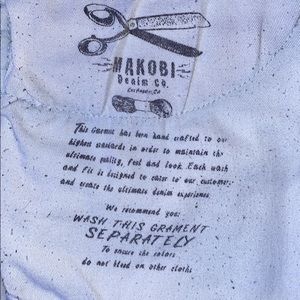 MAKOBI
Denim Co.
Los Angeles, CA
This Garment has been hand crafted to our
highest standards in order to maintain the
ultimate quality, feel and look. Each wash
and fit is designed to cater to our customers
and create the ultimate denim experience.
We recommend you:
WASH THIS GRAMENT
SEPARATELY
To ensure the colors
do not bleed on other cloths